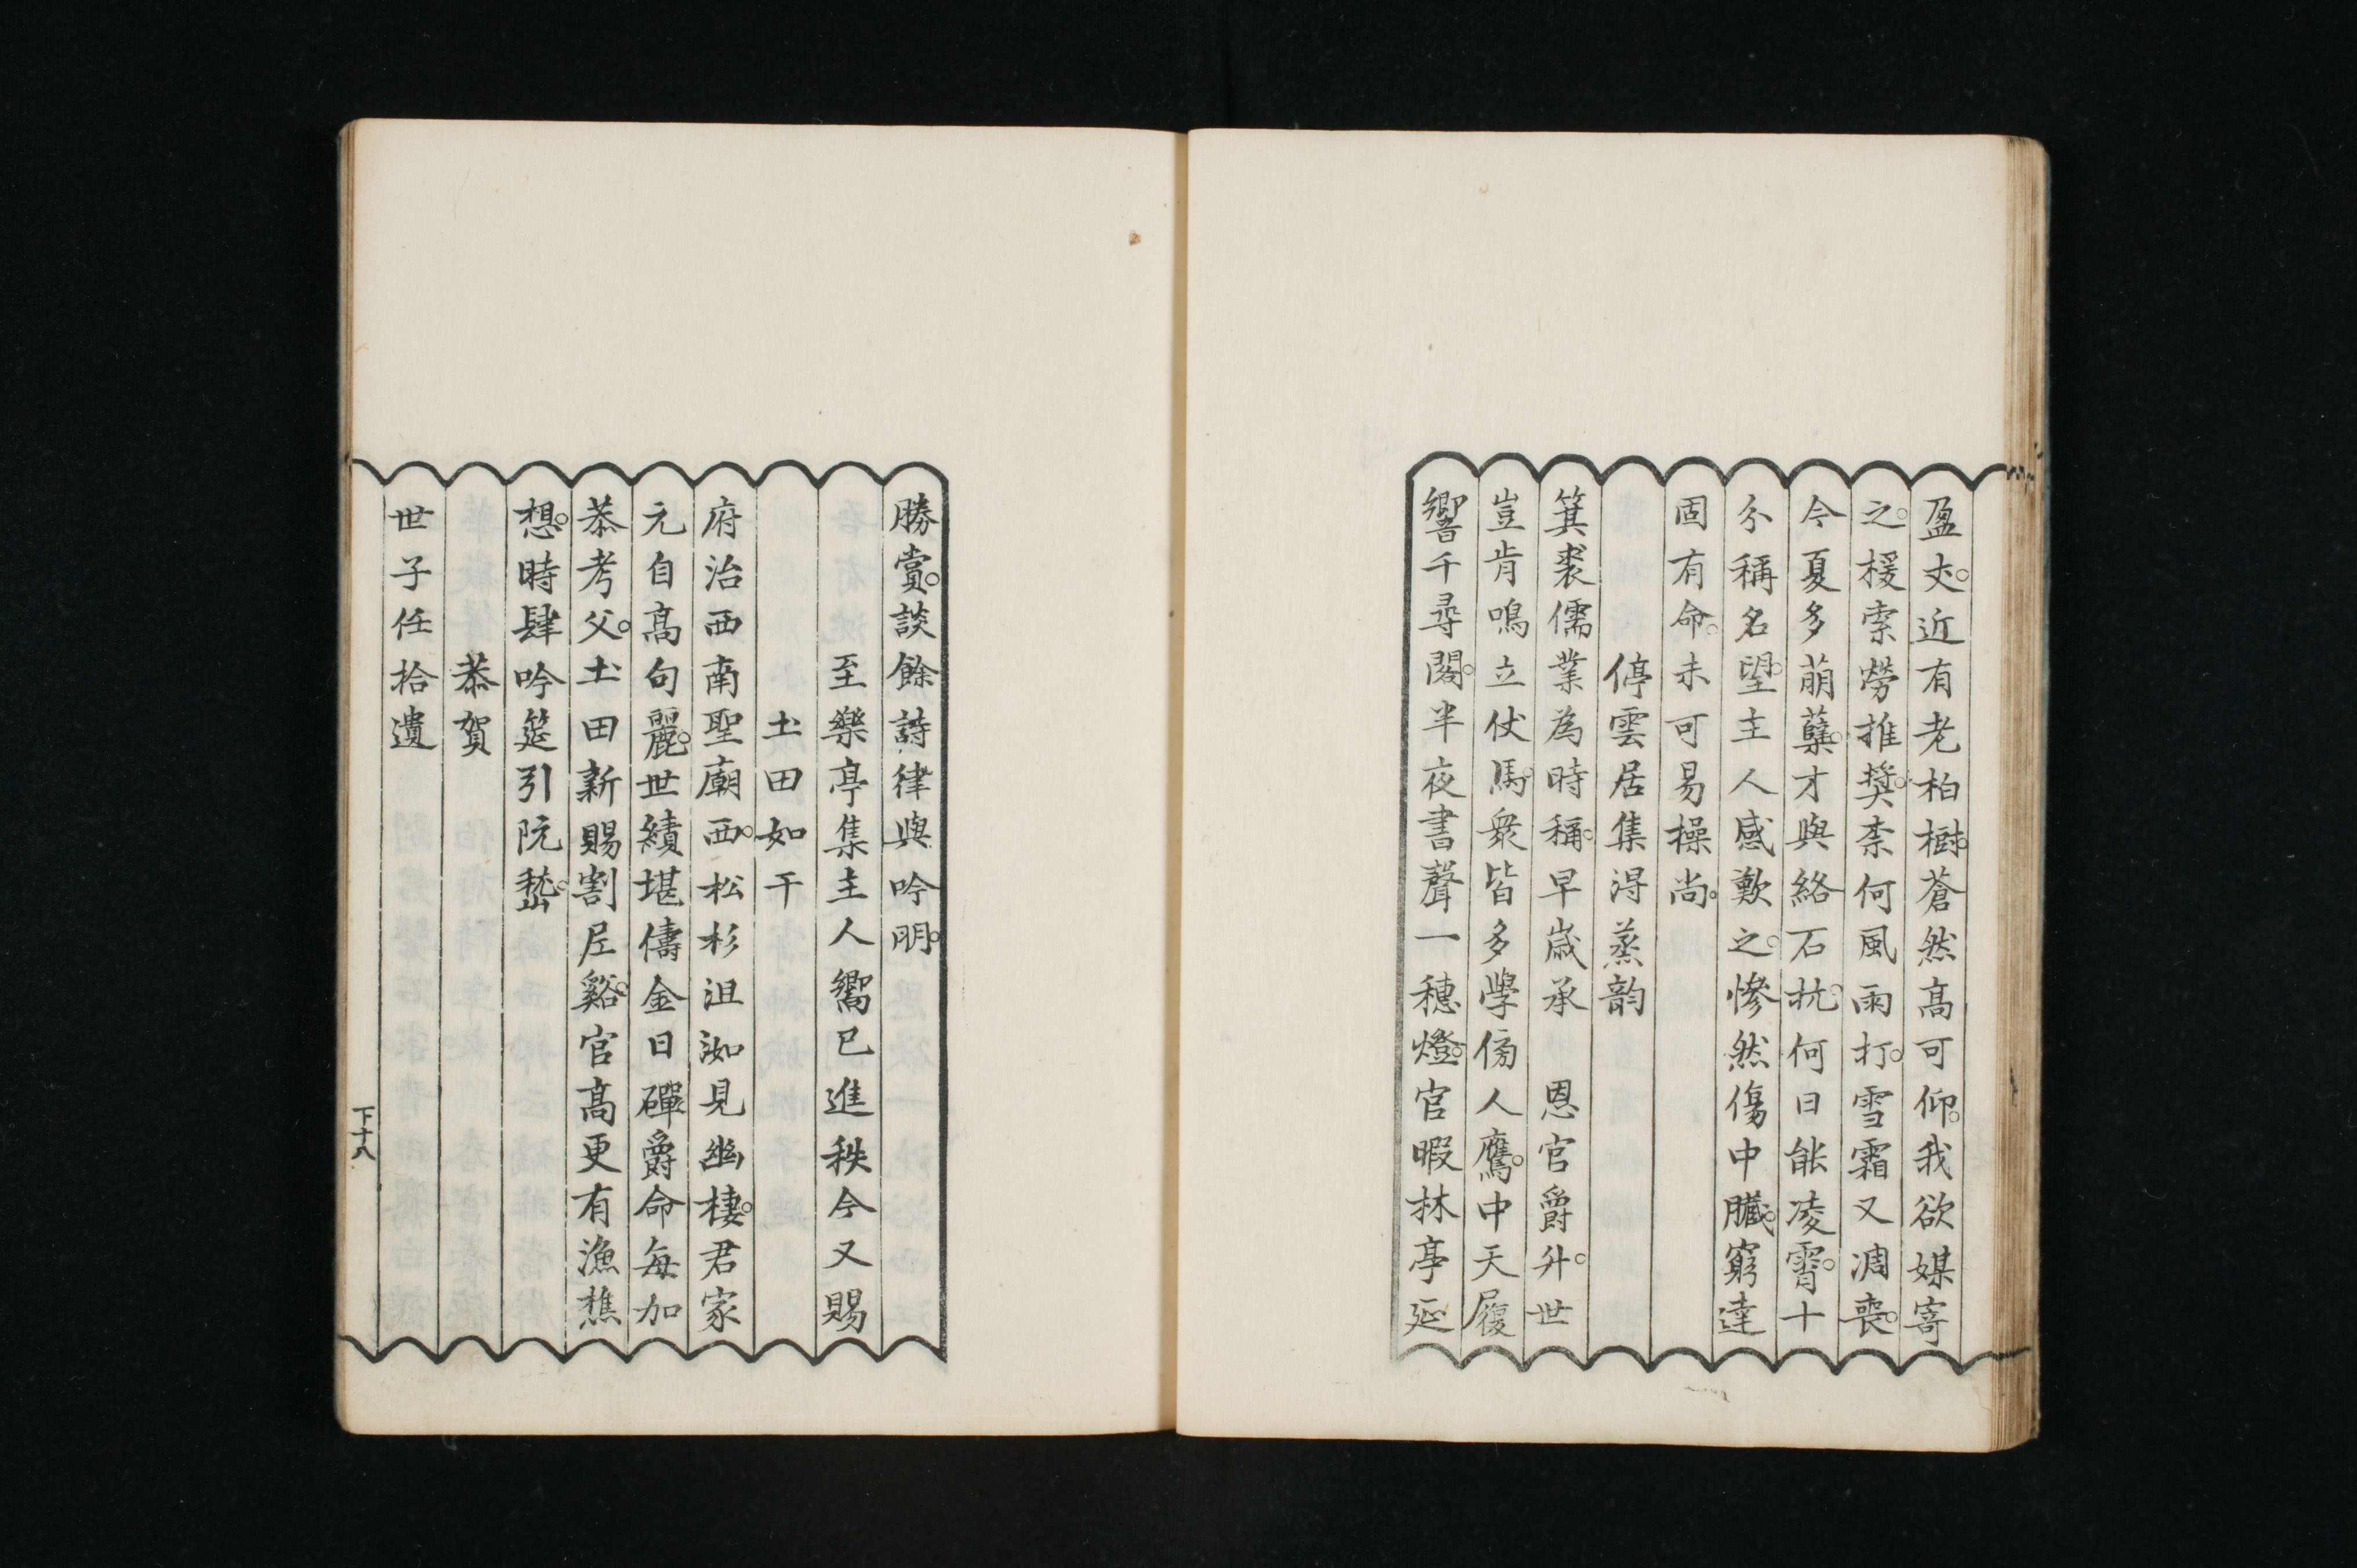 盈丈。近有老柏樹。蒼然高可仰。我欲媒寄
之。棳索勞推奨。柰何風雨打。雪霜又凋喪。
今夏多萠蘖。才與絡石抗。何日能凌霄。十
分稱名望。主人感歎之。慘然傷中臓。窮達
固有命。未可易操尚。
停雲居集得蒸韵
箕裘儒業為時稱。早歲承 恩官爵升。世
豈肯鳴立仗馬。衆皆多學傍人鷹。中天履
響千尋閣。半夜書聲一穗燈。官暇林亭延
勝賞。談餘詩律與吟朋。
至樂亭集主人嚮已進秩今又賜
土田如干
府治西南聖廟西。松杉沮洳見幽棲。君家
元自高句麗。世績堪儔金日磾。爵命每加
恭考父。土田新賜割尼谿。官高更有漁樵
想。時肆吟筵引阮嵆。
恭賀
世子任拾遺
下十八